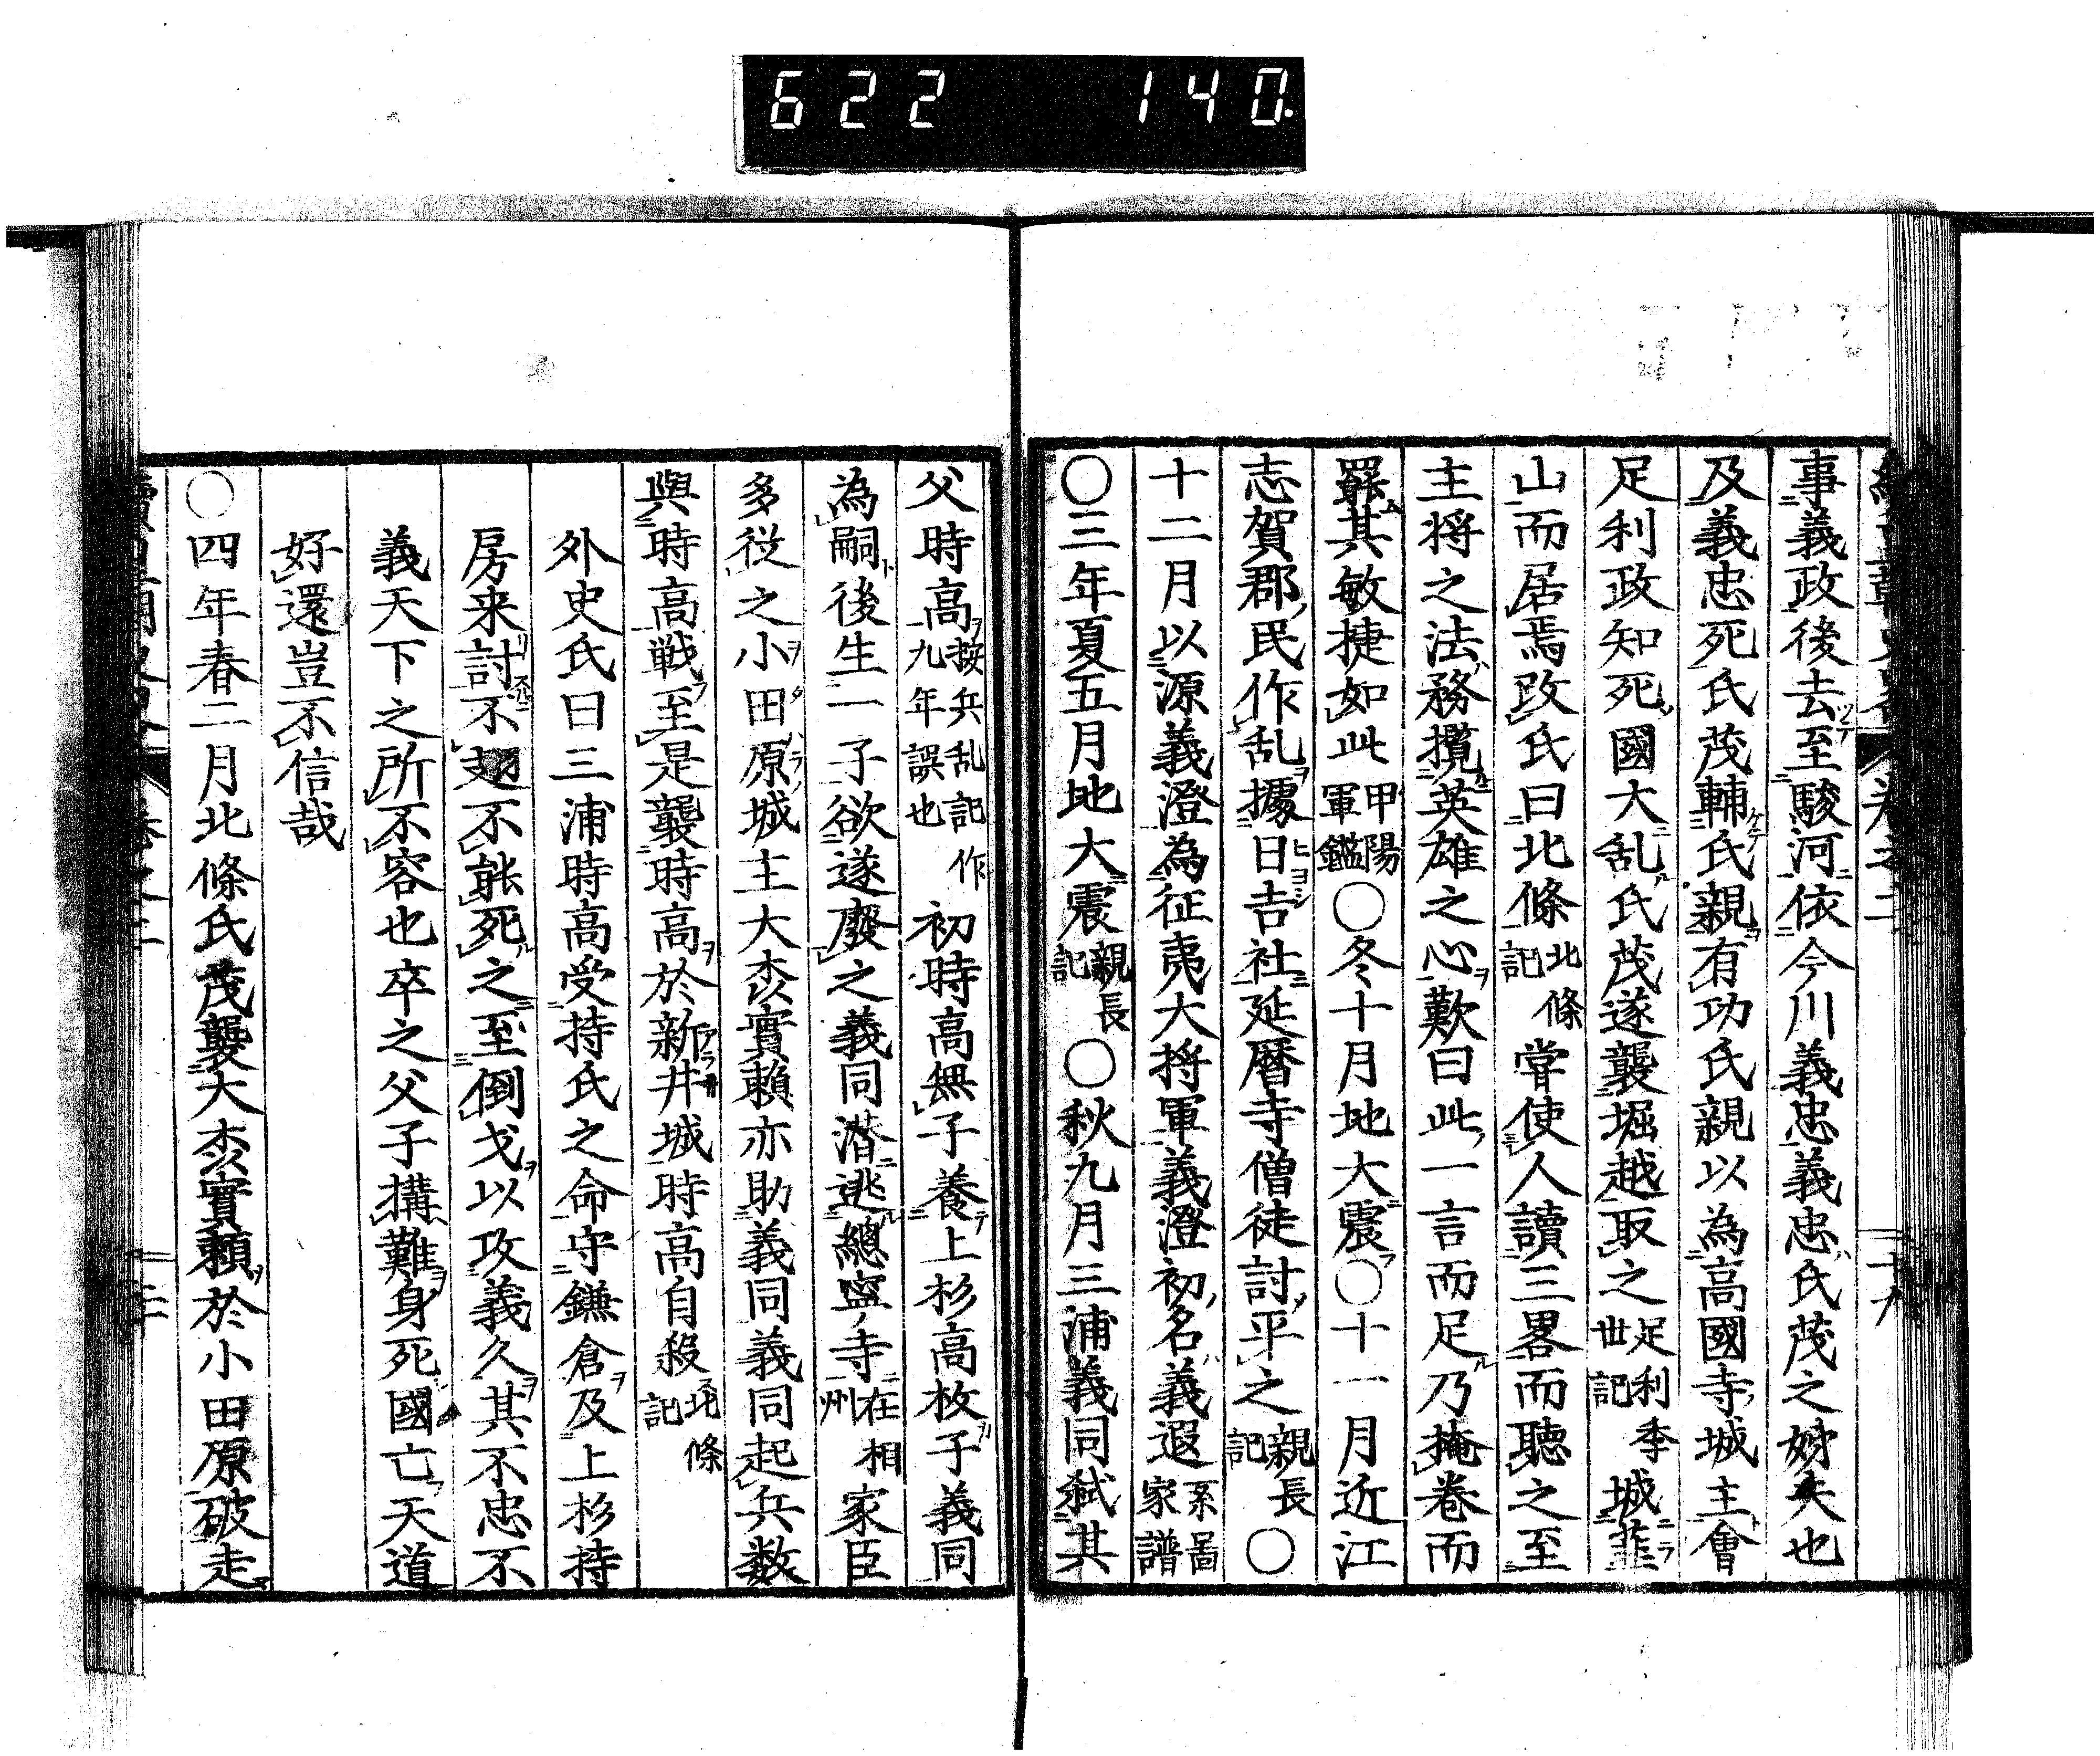 622 140.
事義政後去至駿河依今川義忠義忠氏茂之姊夫也
及義忠死氏茂輔氏親有功氏親以為高國寺城主會
足利政知死國大乱氏茂遂襲堀越取之足利季世記城韮
山而居焉改氏曰北條北條記嘗使人讀三畧而聽之至
主将之法務攬英雄之心歎曰此一言而足乃掩巻而
罷其敏捷如此甲陽軍鑑〇冬十月地大震〇十一月近江
志賀郡民作乱據日吉社延曆寺僧徒討平之親長記〇
十二月以源義澄為征夷大将軍義澄初名義遐系啚家譜
〇三年夏五月地大震親長記〇秋九月三浦義同弑其
父時高按兵乱記作九年誤也初時高無子養上杉高枚子義同
為嗣後生一子欲遂廢之義同潜逃總寧寺在相州家臣
多從之小田原城主大森實賴亦助義同義同起兵数
與時高戦至是襲時高於新井城時高自殺北條記
外史氏曰三浦時高受持氏之命守鎌倉及上杉持
房来討不趐不能死之至倒戈以攻義久其不忠不
義天下之所不容也卒之父子搆難身死國亡天道
好還豈不信哉
〇四年春二月北條氏茂襲大森實賴於小田原破走